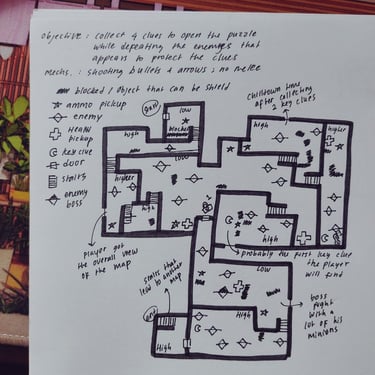 Objective: collect 4 clues to open the puzzle
while defeating the enemies that
appears to protect the clues
mechs.: shooting bullets & arrows; no melee
blocked / object that can be shield
ammo pickup
enemy
health
pickup
key clue
door
stairs
enemy
boss
low
high
blocked
low
high
higher
Chilltown time
after collecting
2 key clues
higher
high
high
probably the first key clue
the player
will find
low
player got
the overall view
of the map
stairs that
lead to another
map
boss
fight
with a
lot of his
minions
high
High